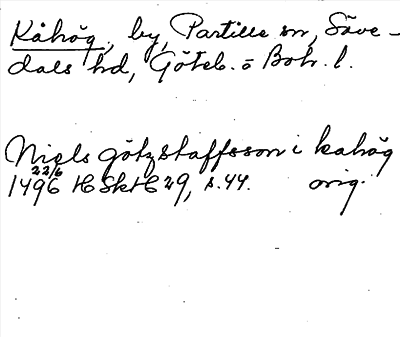 Kåhög, by, Partille sn, Säve-
dals hd, Göteb. o Boh. l.
Niels götzstaffsson i kahög
22/6
1496 HSH 29, s. 44. orig.